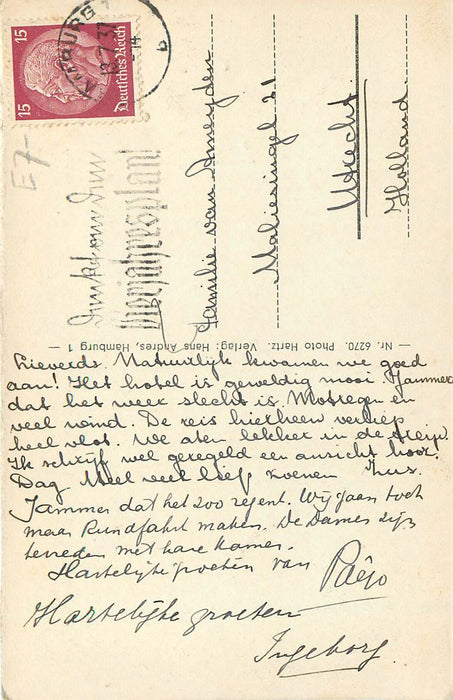 15 Deutsches Reich 15
37
E7-
Vierjahresplan!
Familie van Ameyden
Maliesingel 21
Utrecht
Holland
— Nr. 6270. Photo Hartz. Verlag: Hans Andres, Hamburg 1 —
Lieverds. Natuurlijk kwamen we goed
aan! Het hotel is geweldig mooi. Jammer
dat het weer slecht is Motregen en
veel wind. De reis hierheen verliep
heel vlot. We aten lekker in de trein.
Ik schrijf wel geregeld een ansicht hoor!
Dag. Heel veel lief zoenen Thus.
Jammer dat het zoo regent. Wij gaan toch
maar Rundfahrt maken. De Dames zijn
tevreden met hare kamer.
Hartelijke groeten van
Hartelijke groeten
Ingeborg.